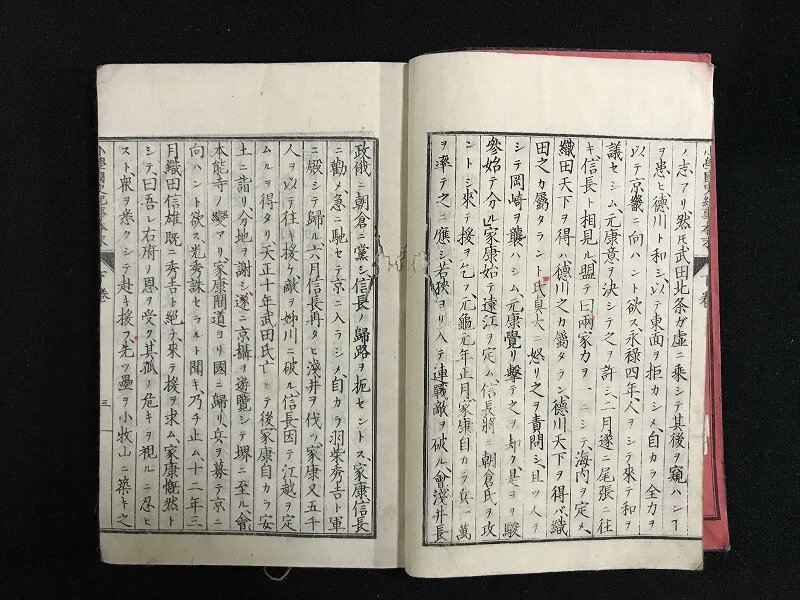 ノ志アリ然𪜈武田北条ガ虚ニ乘シテ其後ヲ窺ハンヿ
ヲ患ヒ德川ト和シ以テ東面ヲ拒カシメ自カラ全力ヲ
以テ京畿ニ向ハント欲ス永禄四年人ヲシテ來テ和ヲ
議セシム元康意ヲ決シテ之ヲ許シ二月遂ニ尾張ニ往
キ信長ト相見ル盟テ曰兩家力ヲ一ニシテ海内ヲ定メ
織田天下ヲ得ハ德川之カ屬タラン德川天下ヲ得バ織
田之カ屬タラント氏真大ニ怒リ之ヲ責問シ且ツ人ヲ
シテ岡崎ヲ襲ハシム元康覺リ擊テ之ヲ却ク是ヨリ駿
參始テ分ル家康始テ遠江ヲ定ム信長將ニ朝倉氏ヲ攻
ントシ來テ援ヲ乞フ元龜元年正月家康自カラ兵一萬
ヲ率テ之ニ應シ若狹ヨリ入テ連戰敵ヲ破ル會淺井長
政俄ニ朝倉ニ黨シ信長ノ歸路ヲ扼セントス家康信長
ニ勸メ急ニ馳セテ京ニ入ラシメ自カラ羽柴秀吉ト軍
ニ殿シテ歸ル六月信長再タヒ淺井ヲ伐ツ家康又五千
人ヲ以テ往キ援ケ敵ヲ姉川ニ破ル信長因テ江越ヲ定
ムルヲ得タリ天正十年武田氏亡ヒテ後家康自カラ安
土ニ詣リ分地ヲ謝シ遂ニ京攝ヲ遊覽シテ堺ニ至ル會
本能寺ノ變アリ家康間道ヨリ國ニ歸リ兵ヲ募テ京ニ
向ハント欲ス光秀誅セラルト聞キ乃チ止ム十二年三
月織田信雄既ニ秀吉ト絶チ來テ援ヲ求ム家康慨然ト
シテ曰吾レ右府ノ恩ヲ受ク其孤ノ危キヲ視ルニ忍ヒ
スト衆ヲ悉クシテ赴キ援フ先ツ壘ヲ小牧山ニ築キ之
小學國史紀事本末
下卷
三